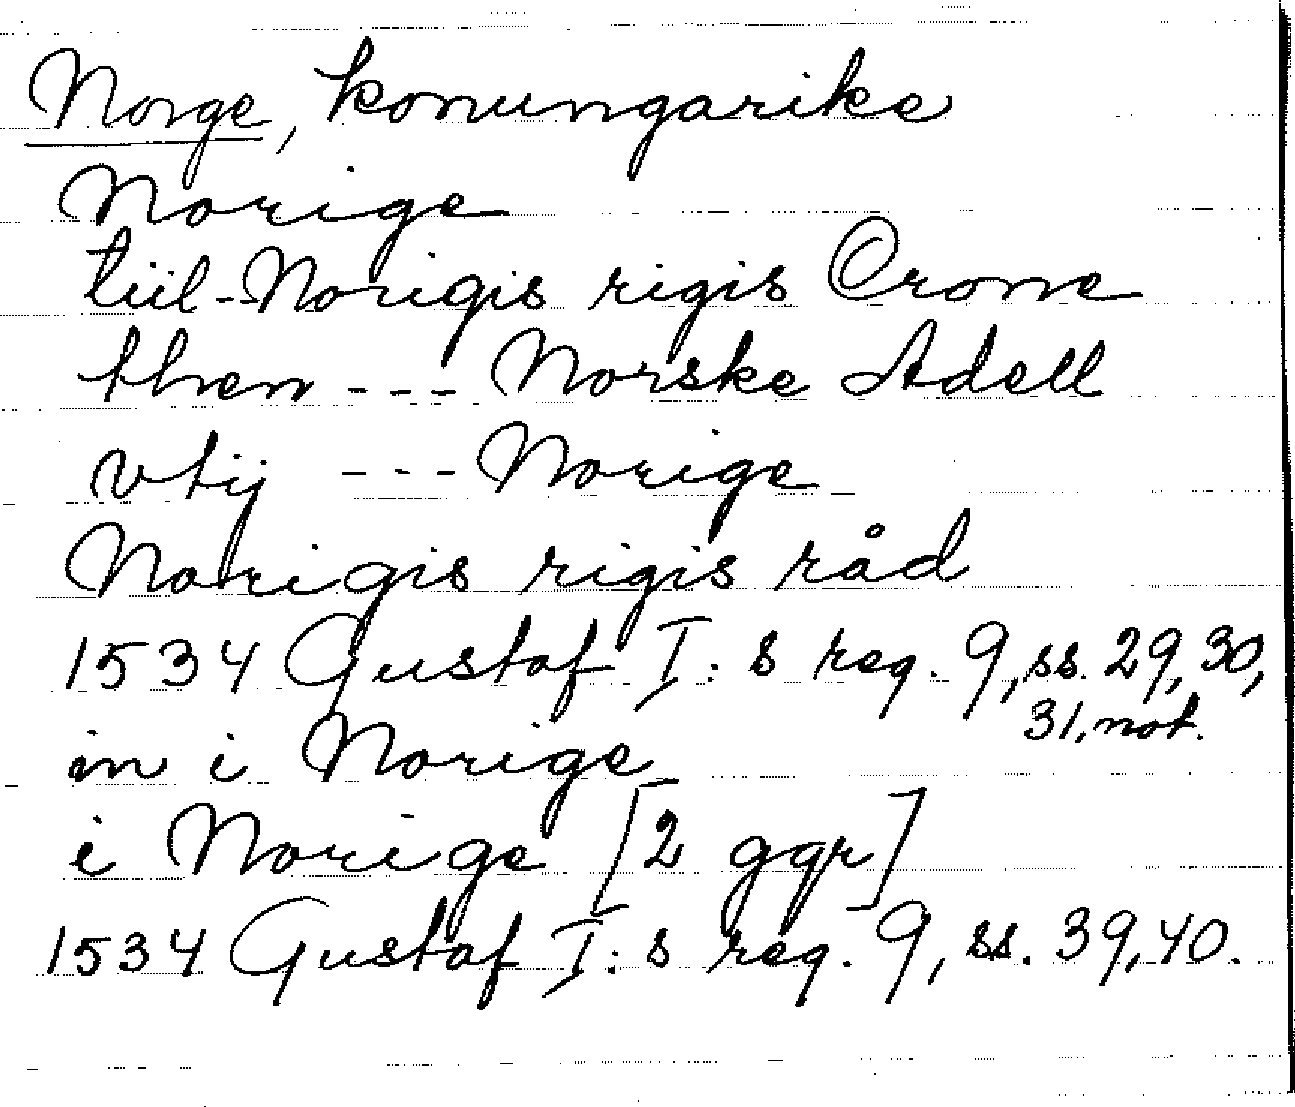 Norge, konungarike
Norige
tiil Norigis rigis Crone
then --- Norske Adell
vtij --- Norige
Norigis rigis råd
1534 Gustaf I:s reg. 9, ss. 29, 30,
31, not.
in i Norige
i Norige [2 ggr]
1534 Gustaf I:s reg. 9, ss. 39, 40.